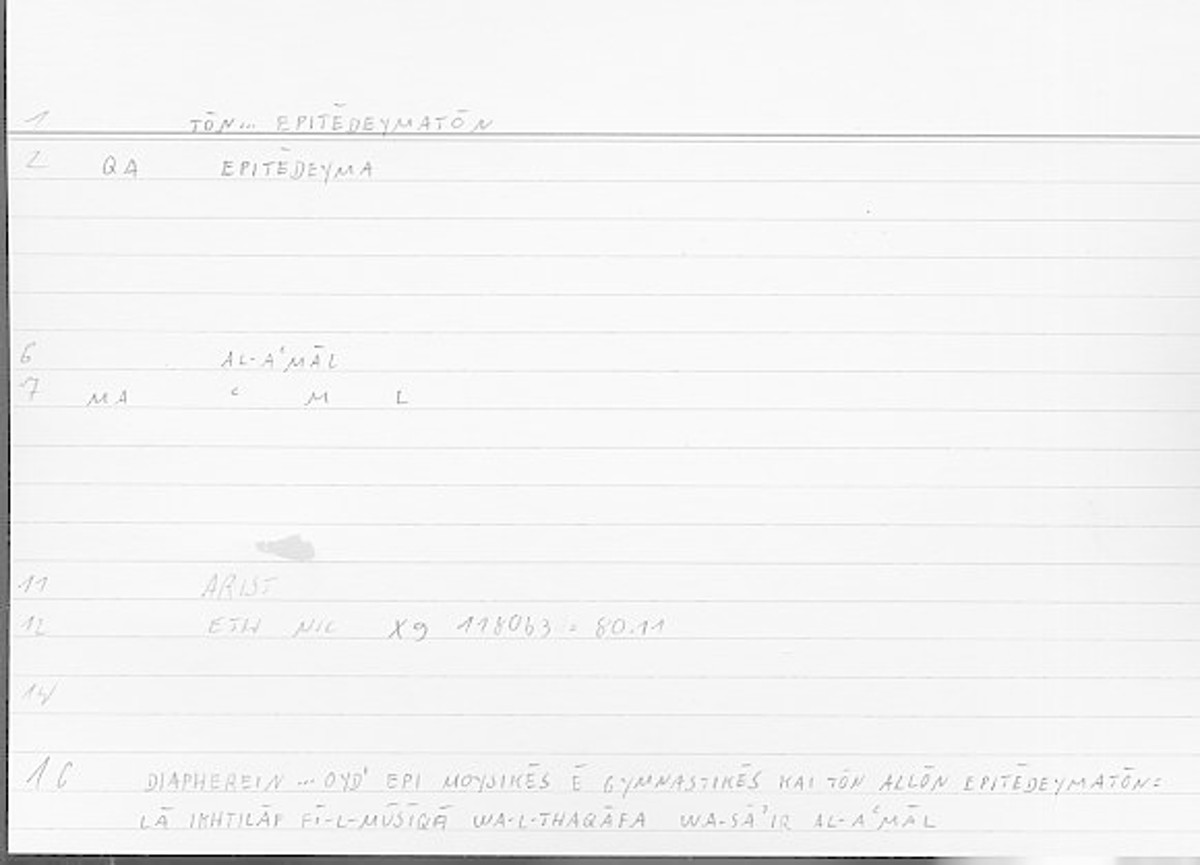 1 TŌN... EPITĒDEYMATŌN
2 QA EPITĒDEYMA
6 AL-AʿMĀL
7 MA ʿ M L
11 ARIST
12 ETH NIC X9 1180b3 = 80.11
14
16 DIAPHEREIN ... OYD' EPI MOYSIKĒS Ē GYMNASTIKĒS KAI TŌN ALLŌN EPITĒDEYMATŌN=
LĀ IKHTILĀF FĪ-L-MŪSĪQĀ WA-L-THAQĀFA WA-SĀʾIR AL-AʿMĀL